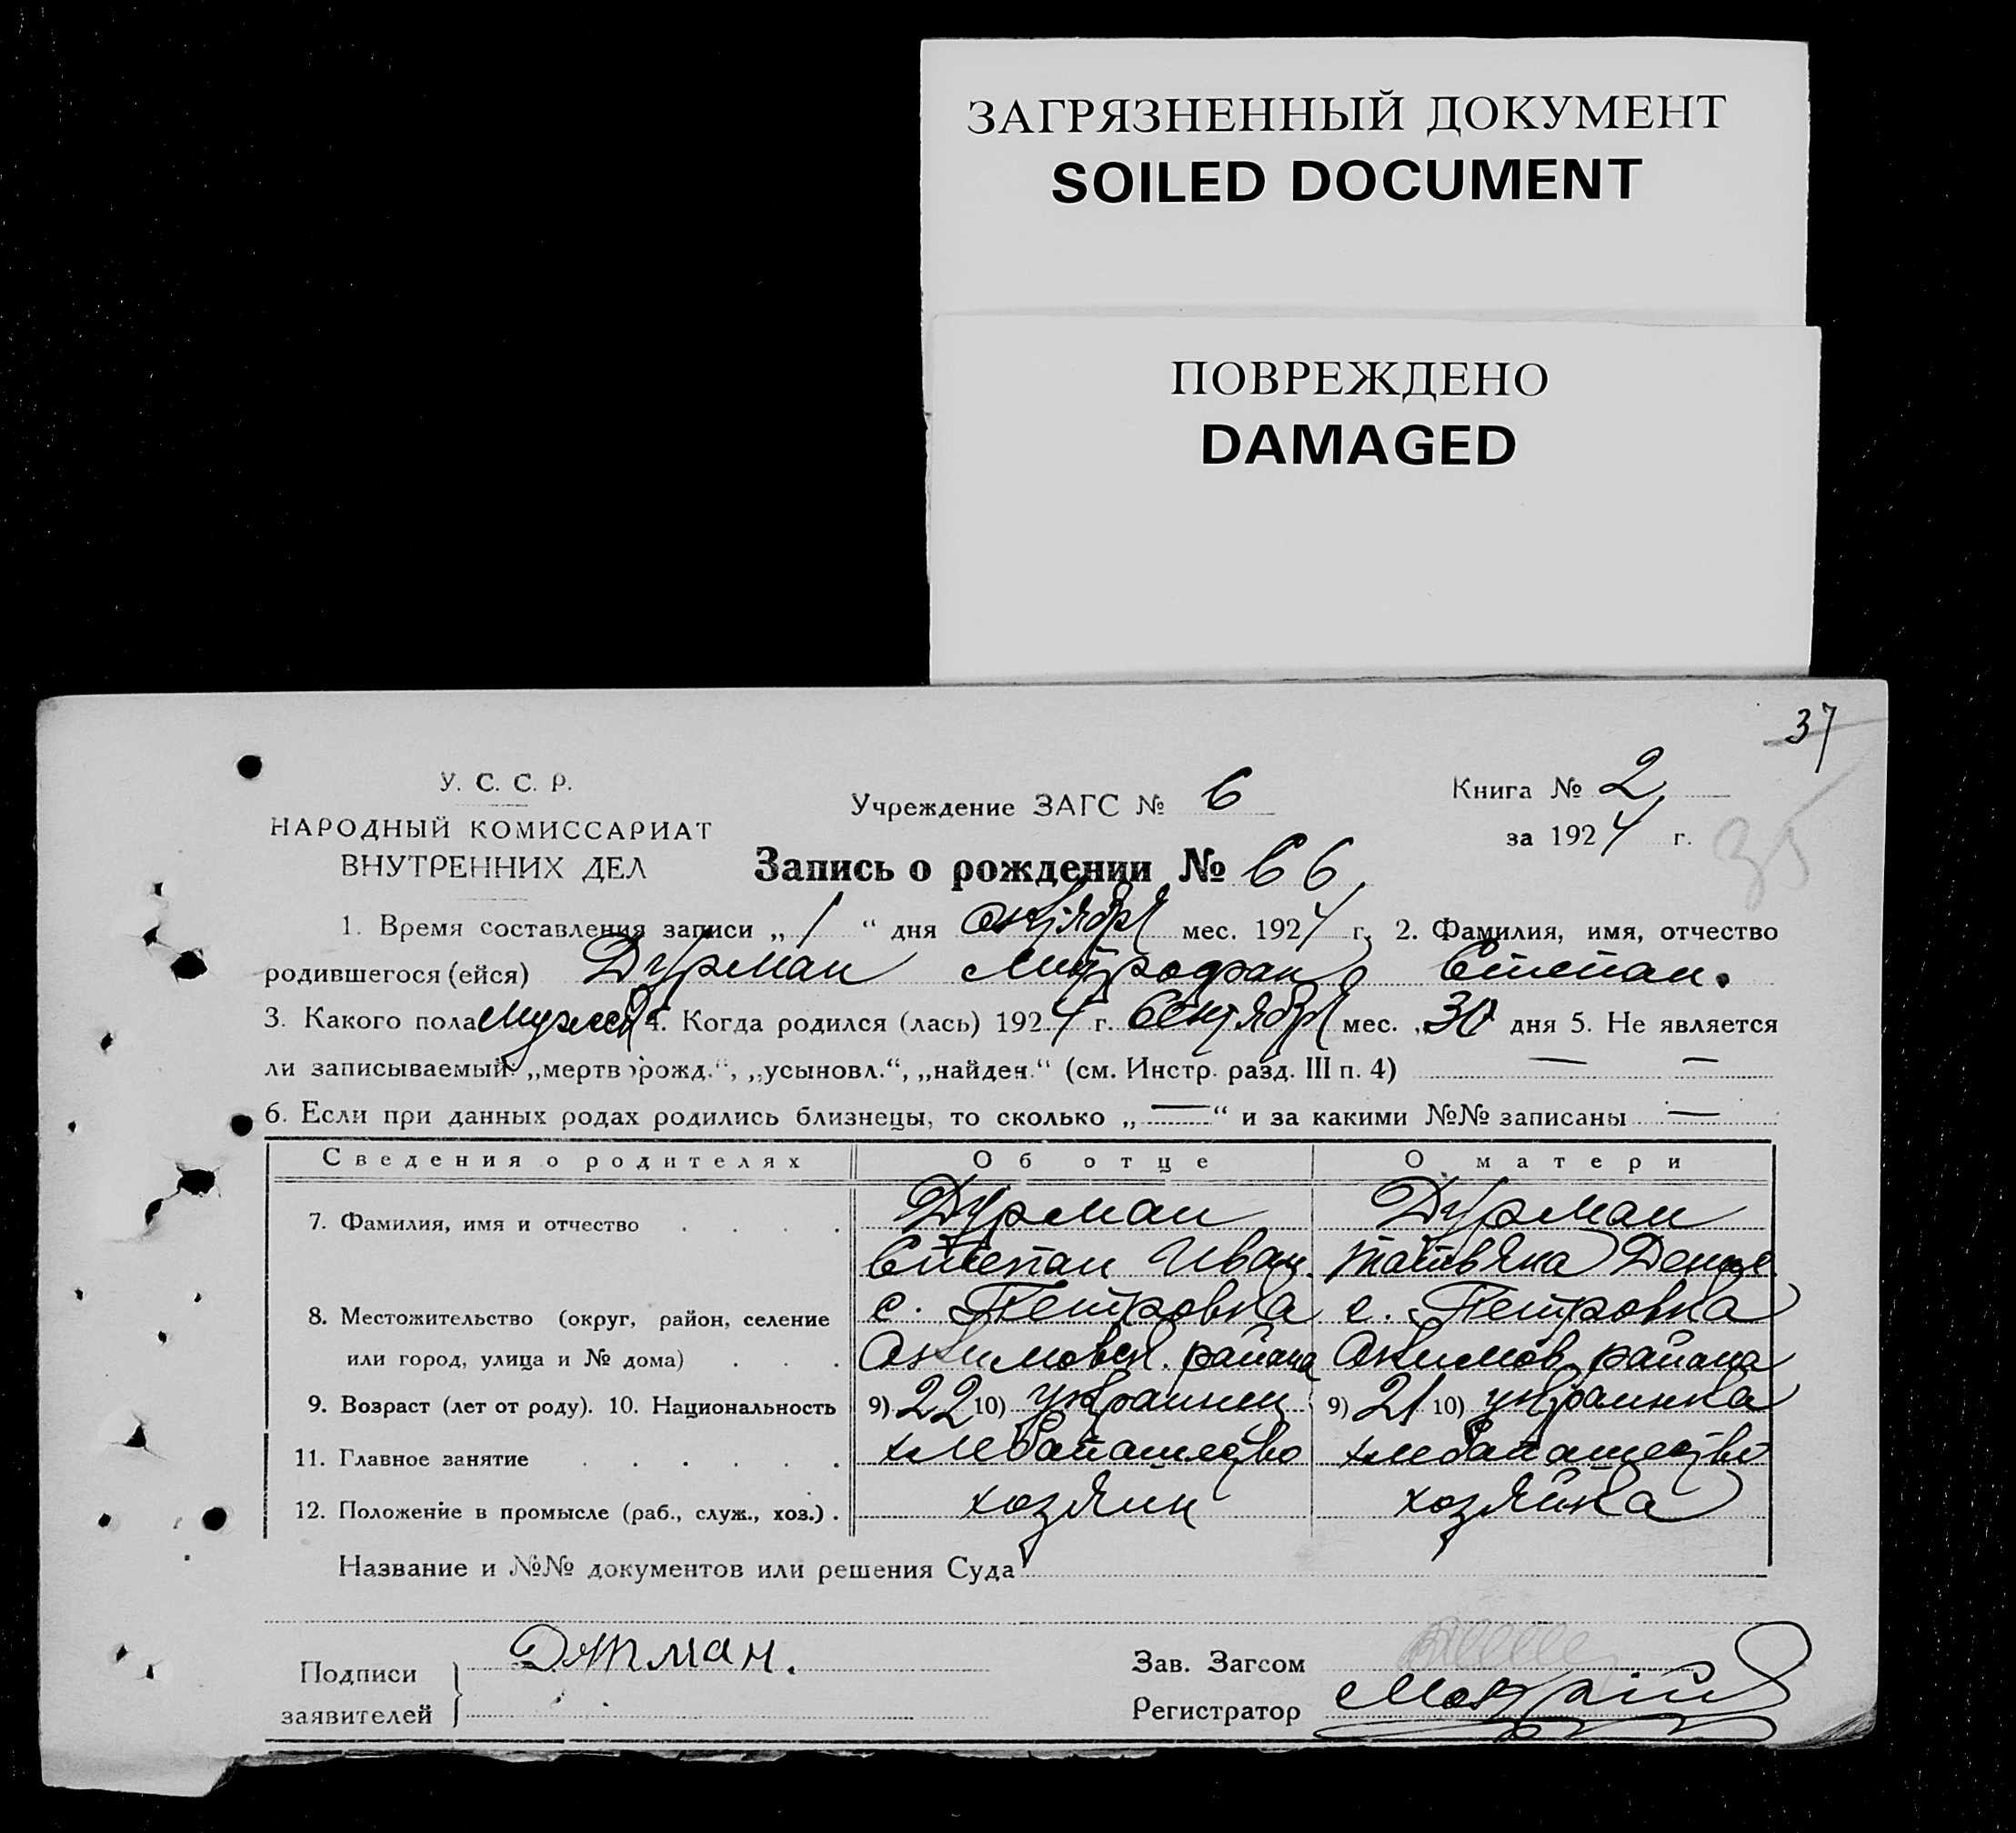 ЗАГРЯЗНЕННЫЙ ДОКУМЕНТ
SOILED DOCUMENT
ПОВРЕЖДЕНО
DAMAGED
37
У. С. С. Р.
НАРОДНЫЙ КОМИССАРИАТ
ВНУТРЕННИХ ДЕЛ
Учреждение ЗАГС № 6
Книга № 2
за 1924 г.
35
Запись о рождении № 66
1. Время составления записи „ 1 “ дня октября мес. 1924 г. 2. Фамилия, имя, отчество
родившегося (ейся) Дурман Митрофан Степан.
3. Какого пола мужск 4. Когда родился (лась) 1924 г. Сентября мес. „30 дня 5. Не является
ли записываемый: „мертворожд.“, „усыновл.“, „найден.“ (см. Инстр. разд. III п. 4) — —
6. Если при данных родах родились близнецы, то сколько „ — “ и за какими №№ записаны —
Сведения о родителях Об отце О матери
7. Фамилия, имя и отчество . . . . Дурман Дурман
Степан Иван. Татьяна
8. Местожительство (округ, район, селение с. Петровка с. Петровка
или город, улица и № дома) . . . Акимовск. района Акимов. района
9. Возраст (лет от роду). 10. Национальность 9) 22 10) украинец 9) 21 10) украинка
11. Главное занятие . . . . . . хлебопашество хлебопашество
12. Положение в промысле (раб., служ., хоз.) . хозяин хозяйка
Название и №№ документов или решения Суда
Подписи
заявителей
Зав. Загсом
Регистратор